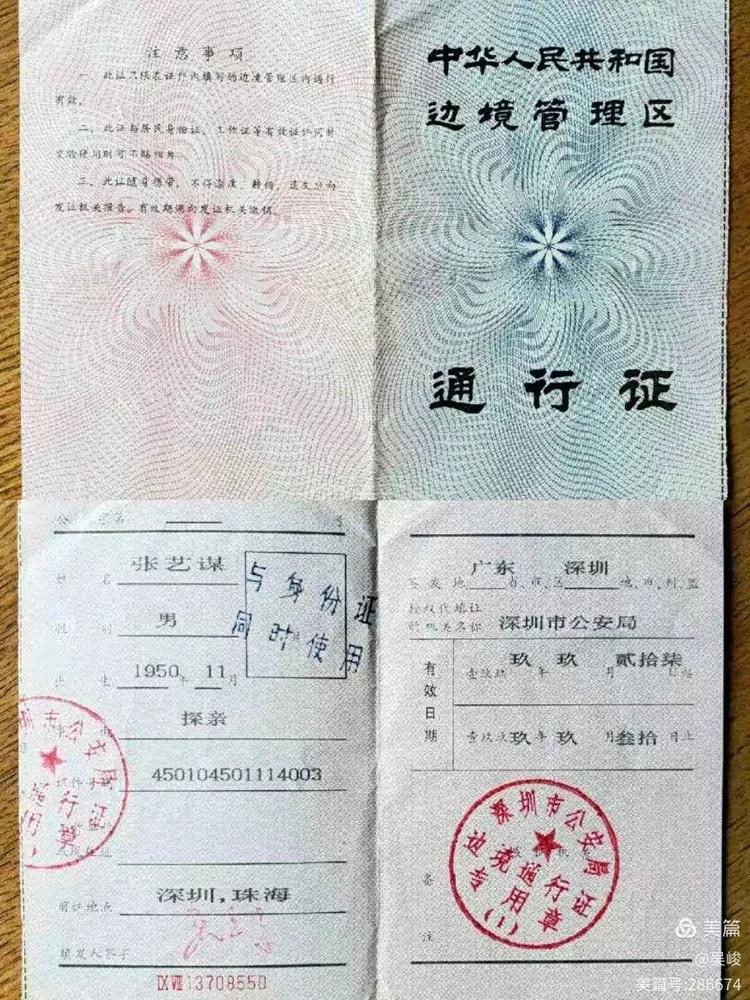 注意事项
一、此证只限在证件内填写的边境管理区内通行
有效。
二、此证与居民身份证、工作证等有效证件同时
交验使用则可不贴相片。
三、此证随身携带，不得涂准、转借，遗失应向
发证机关报告。有效期满向发证机关缴销。
中华人民共和国
边境管理区
通行证
姓名 张艺谋
性别 男
出生 1950年 11月
探亲
450104501114003
前往地点 深圳,珠海
填发人签字
ⅨⅧ13708550
与身份证
同时使用
广东 深圳
签发地 省、市、区 地、市、州、盟
授权代填证
的机关名称 深圳市公安局
有效日期
壹玖玖玖年玖月贰拾柒日始
壹玖玖玖年玖月叁拾日止
备注
深圳市公安局
边境通行证
专用章
(1)
圳市公安局
通行证
用章
美篇
@吴峻
美篇号:286674